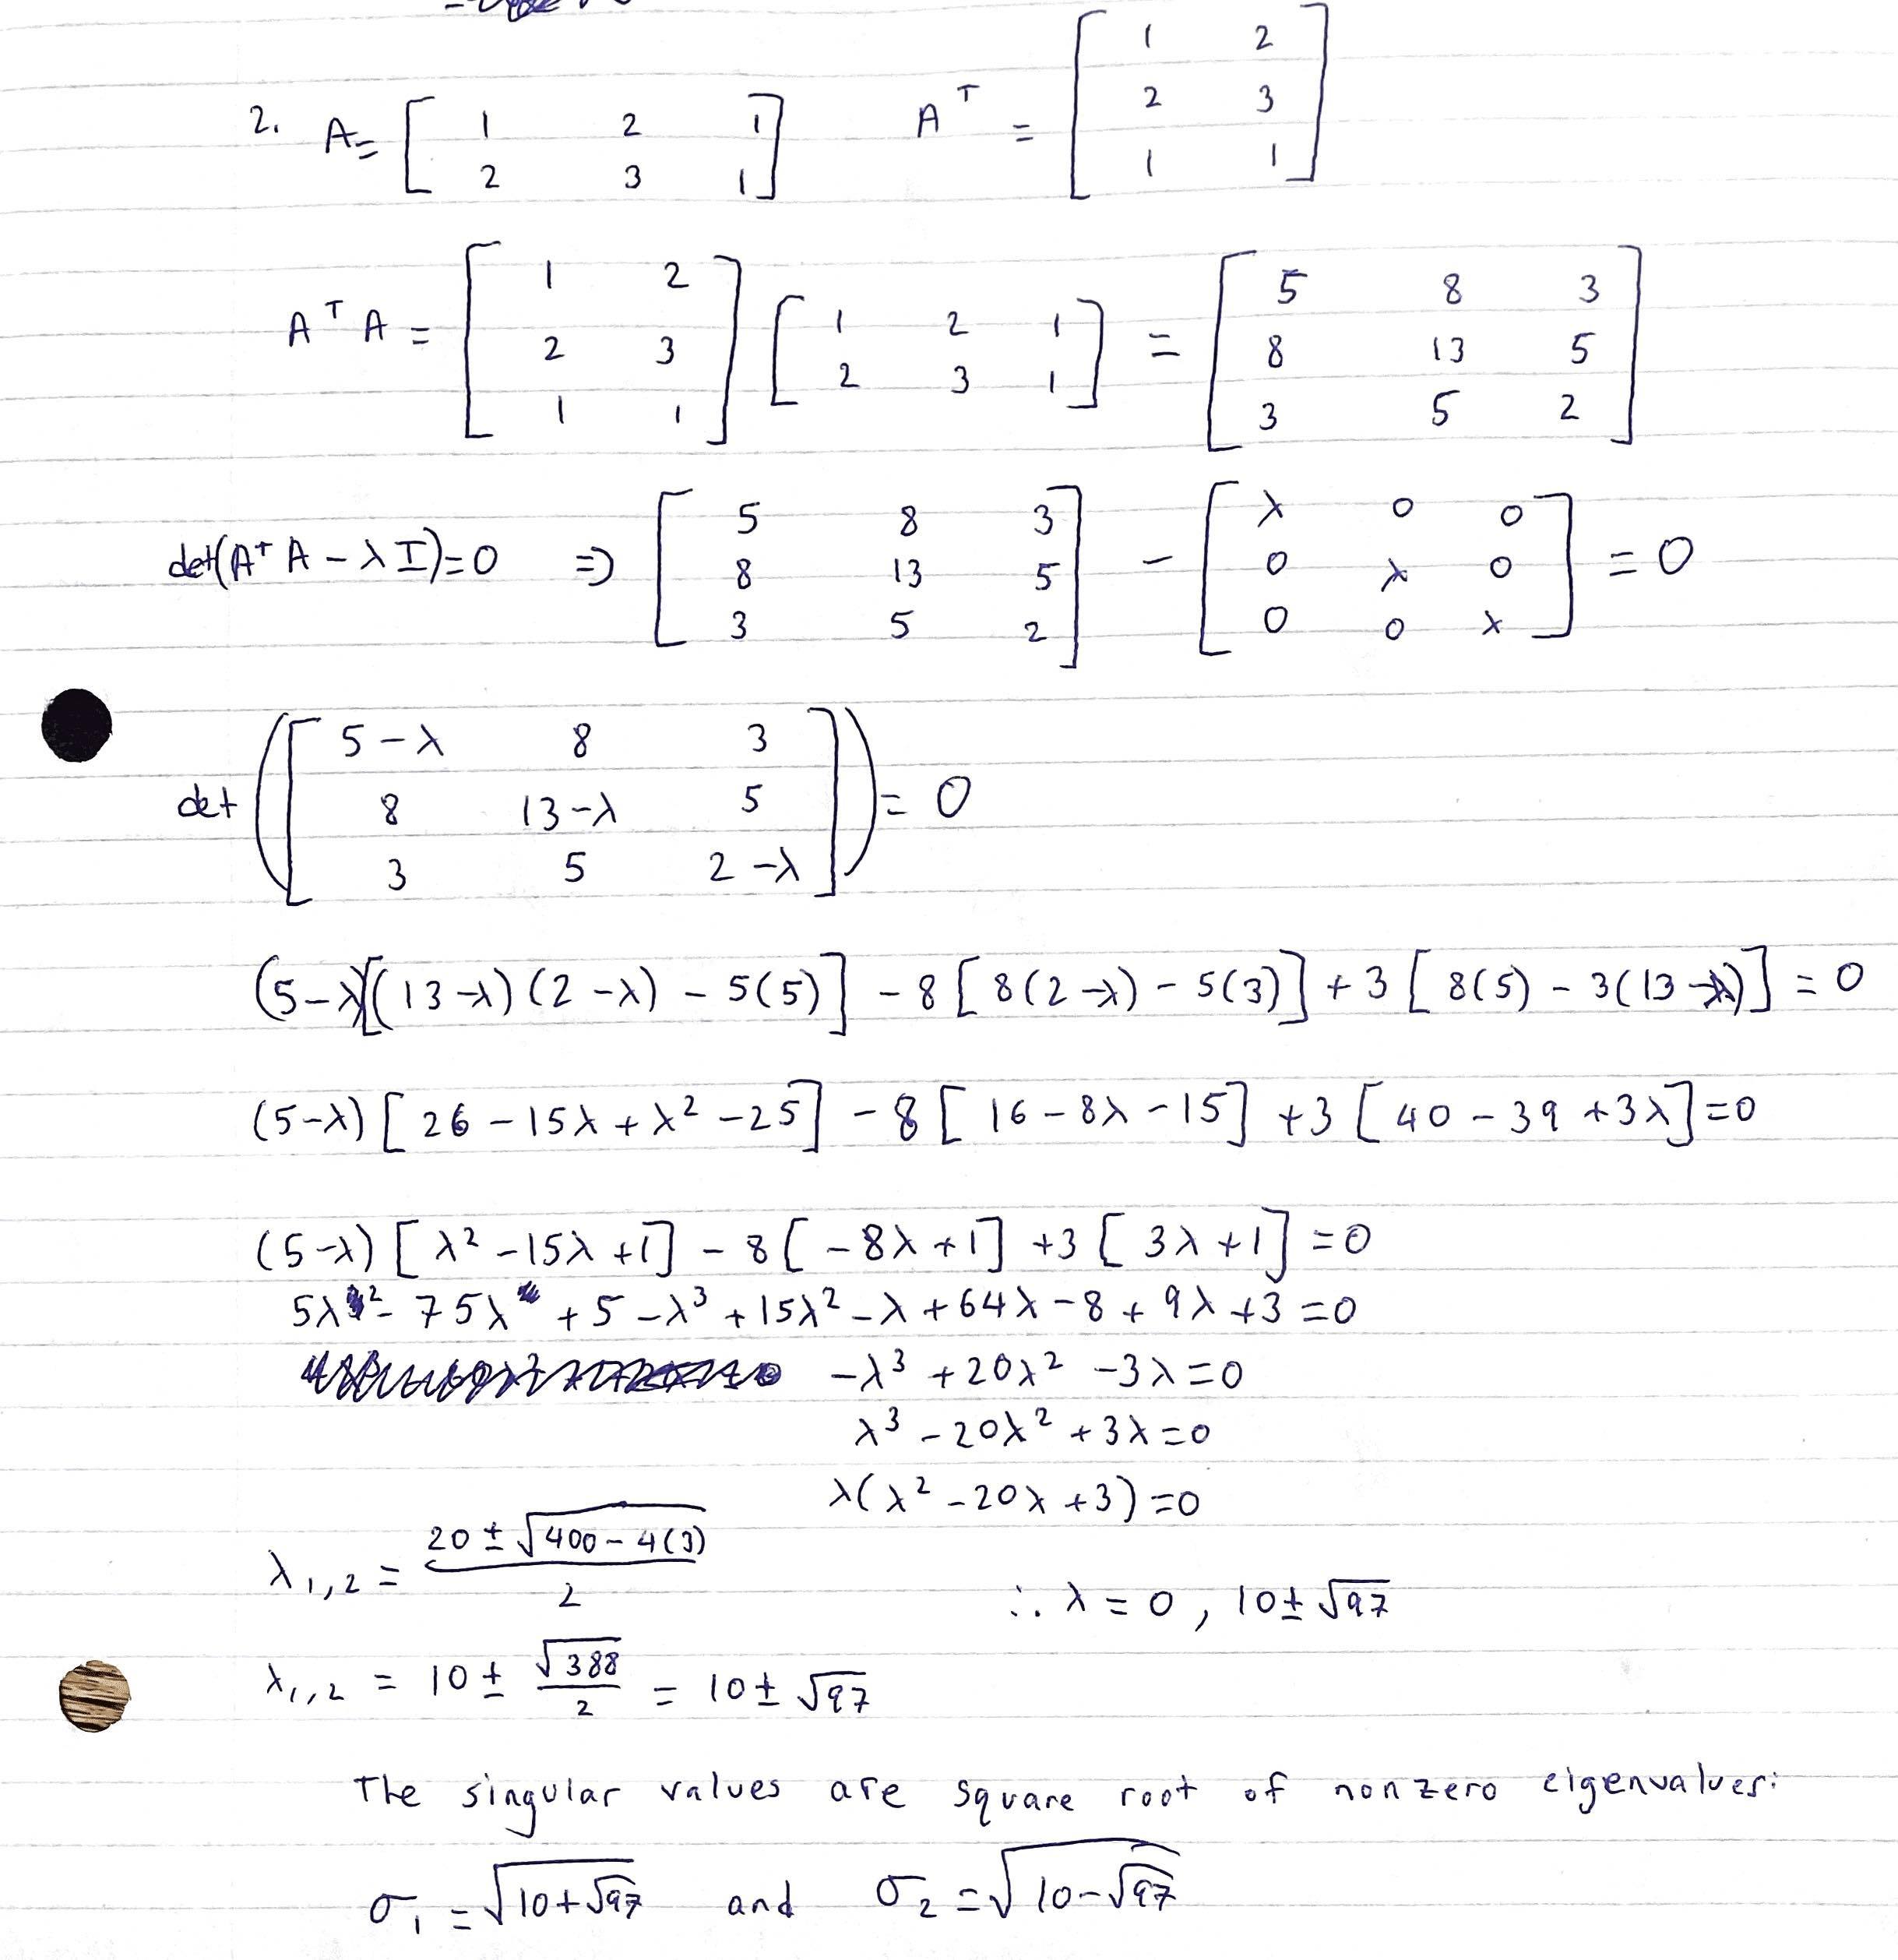 2. A = [ 1 2 1 ; 2 3 1 ]   A^T = [ 1 2 ; 2 3 ; 1 1 ]
A^T A = [ 1 2 ; 2 3 ; 1 1 ] [ 1 2 1 ; 2 3 1 ] = [ 5 8 3 ; 8 13 5 ; 3 5 2 ]
det(A^T A - λI)=0 ⇒ [ 5 8 3 ; 8 13 5 ; 3 5 2 ] - [ λ 0 0 ; 0 λ 0 ; 0 0 λ ] = 0
det ( [ 5-λ 8 3 ; 8 13-λ 5 ; 3 5 2-λ ] ) = 0
(5-λ)[(13-λ)(2-λ) - 5(5)] - 8[8(2-λ) - 5(3)] + 3[8(5) - 3(13-λ)] = 0
(5-λ)[26 - 15λ + λ² - 25] - 8[16 - 8λ - 15] + 3[40 - 39 + 3λ] = 0
(5-λ)[λ² - 15λ + 1] - 8[-8λ + 1] + 3[3λ + 1] = 0
5λ² - 75λ + 5 - λ³ + 15λ² - λ + 64λ - 8 + 9λ + 3 = 0
-λ³ + 20λ² - 3λ = 0
λ³ - 20λ² + 3λ = 0
λ(λ² - 20λ + 3) = 0
λ1,2 = (20 ± √(400 - 4(3))) / 2
∴ λ = 0, 10 ± √97
λ1,2 = 10 ± √388 / 2 = 10 ± √97
The singular values are square root of nonzero eigenvalues:
σ1 = √(10+√97) and σ2 = √(10-√97)